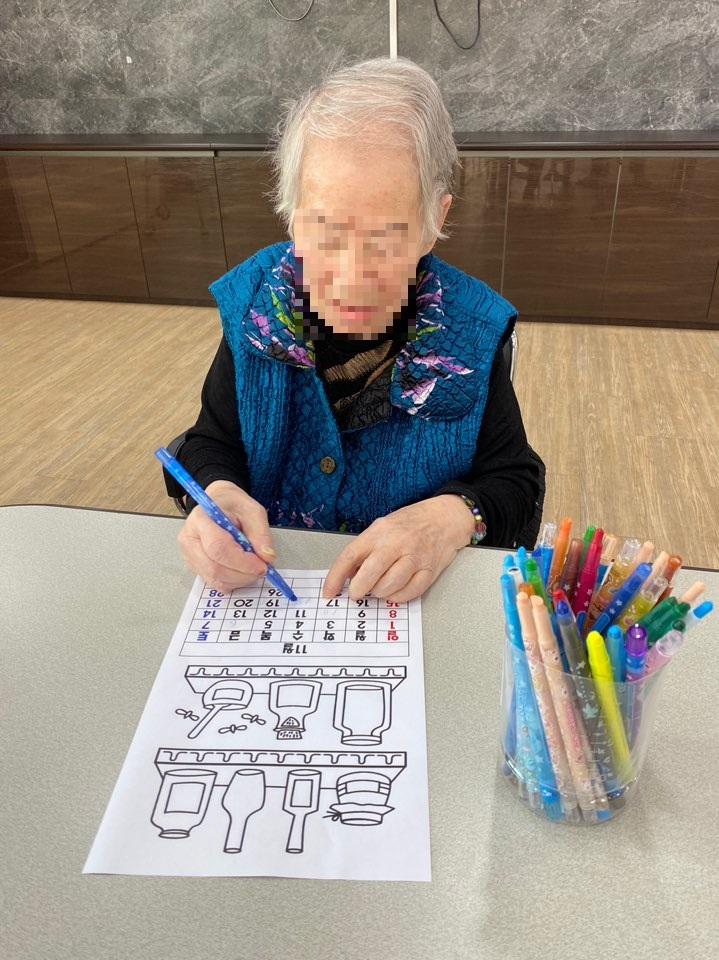 11월
일 월 화 수 목 금 토
1 2 3 4 5 6 7
8 9 11 12 13 14
15 16 17 19 20 21
26 28